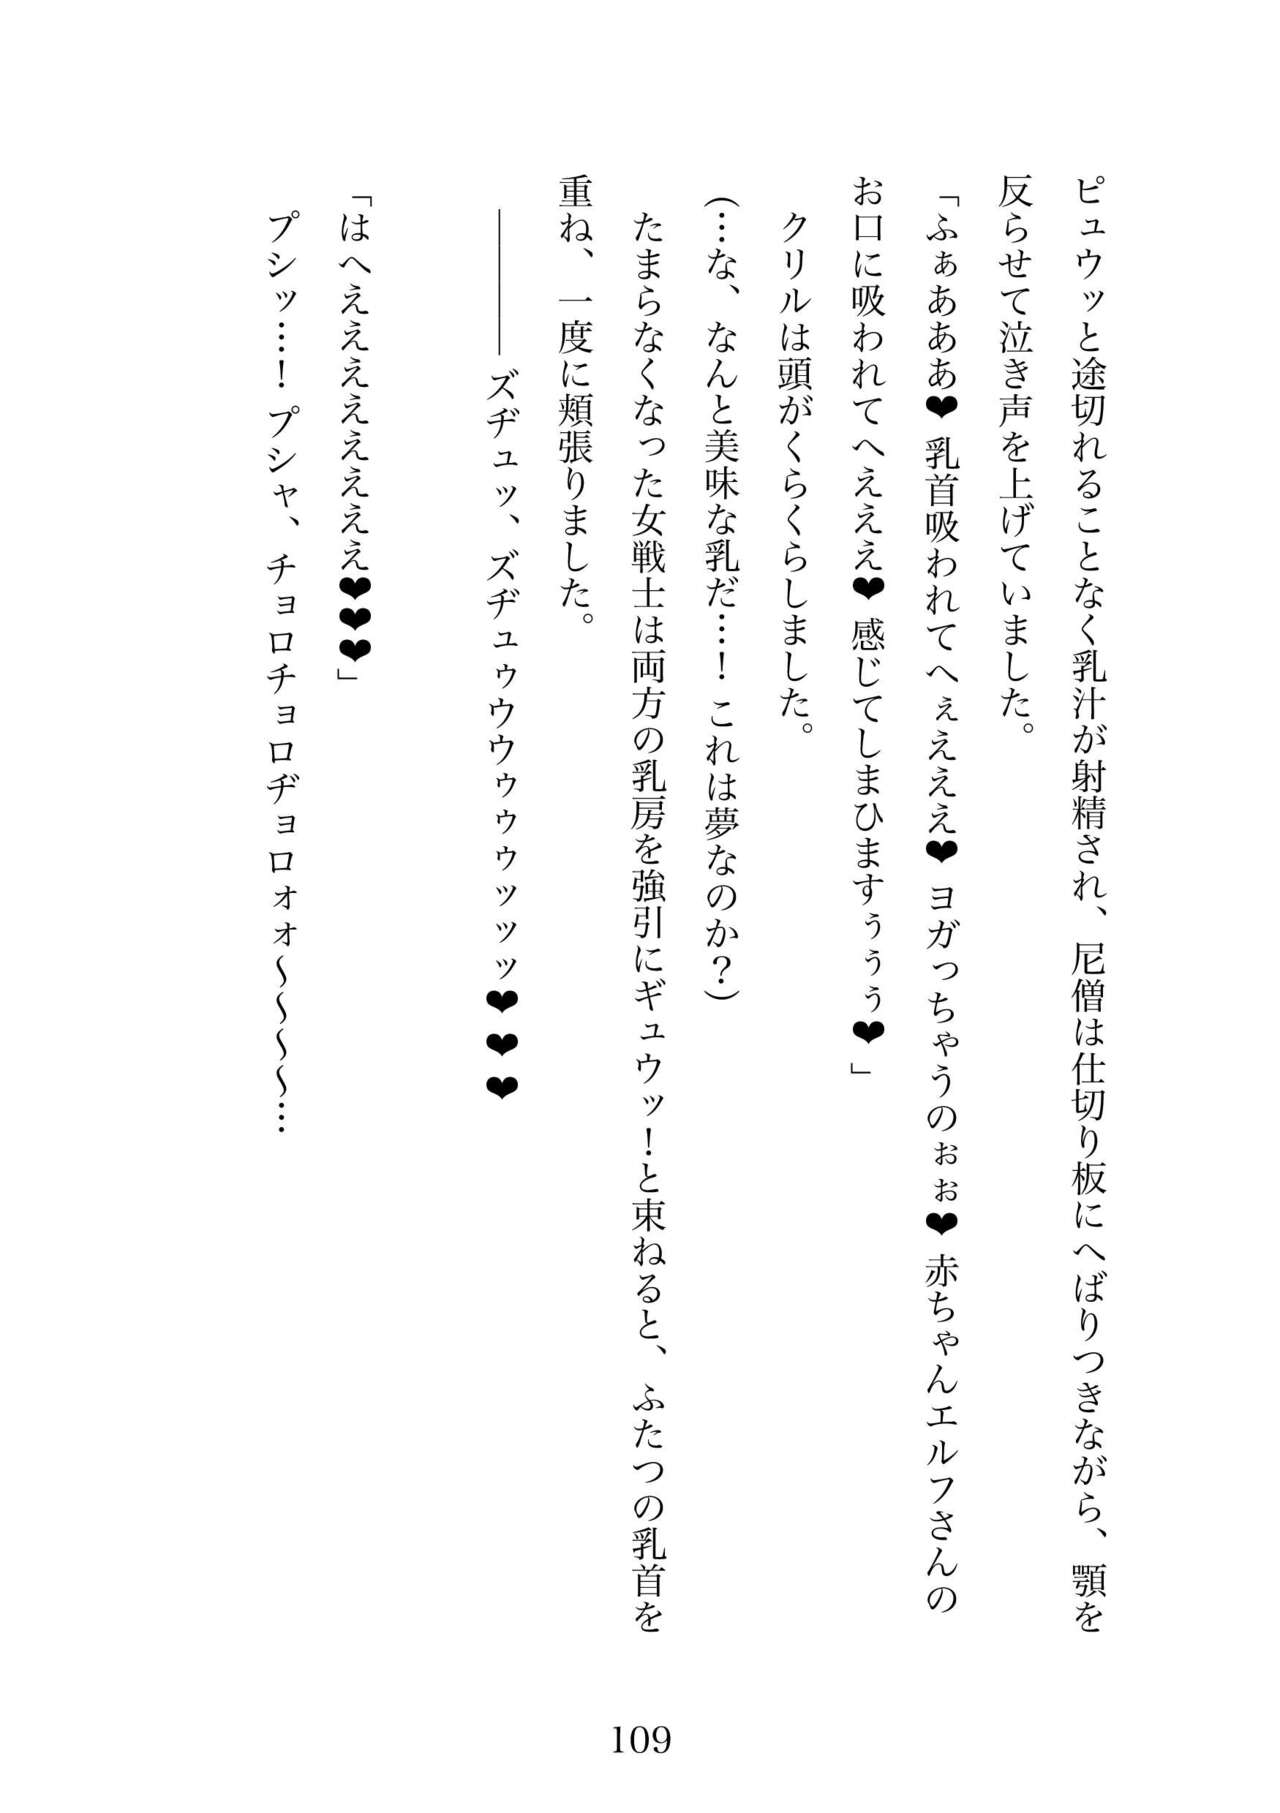 ピュウッと途切れることなく乳汁が射精され、尼僧は仕切り板にへばりつきながら、顎を
反らせて泣き声を上げていました。
「ふぁあああ❤乳首吸われてへぇえええ❤ヨガっちゃうのぉぉ❤赤ちゃんエルフさんの
お口に吸われてへえええ❤感じてしまひますぅぅぅ❤」
クリルは頭がくらくらしました。
(…な、なんと美味な乳だ…！これは夢なのか？)
たまらなくなった女戦士は両方の乳房を強引にギュウッ！と束ねると、ふたつの乳首を
重ね、一度に頬張りました。
――――ズヂュッ、ズヂュゥウウゥゥゥッッッ❤❤❤
「はへええええええええ❤❤❤」
プシッ…！プシャ、チョロチョロヂョロォォ～～～～…
109